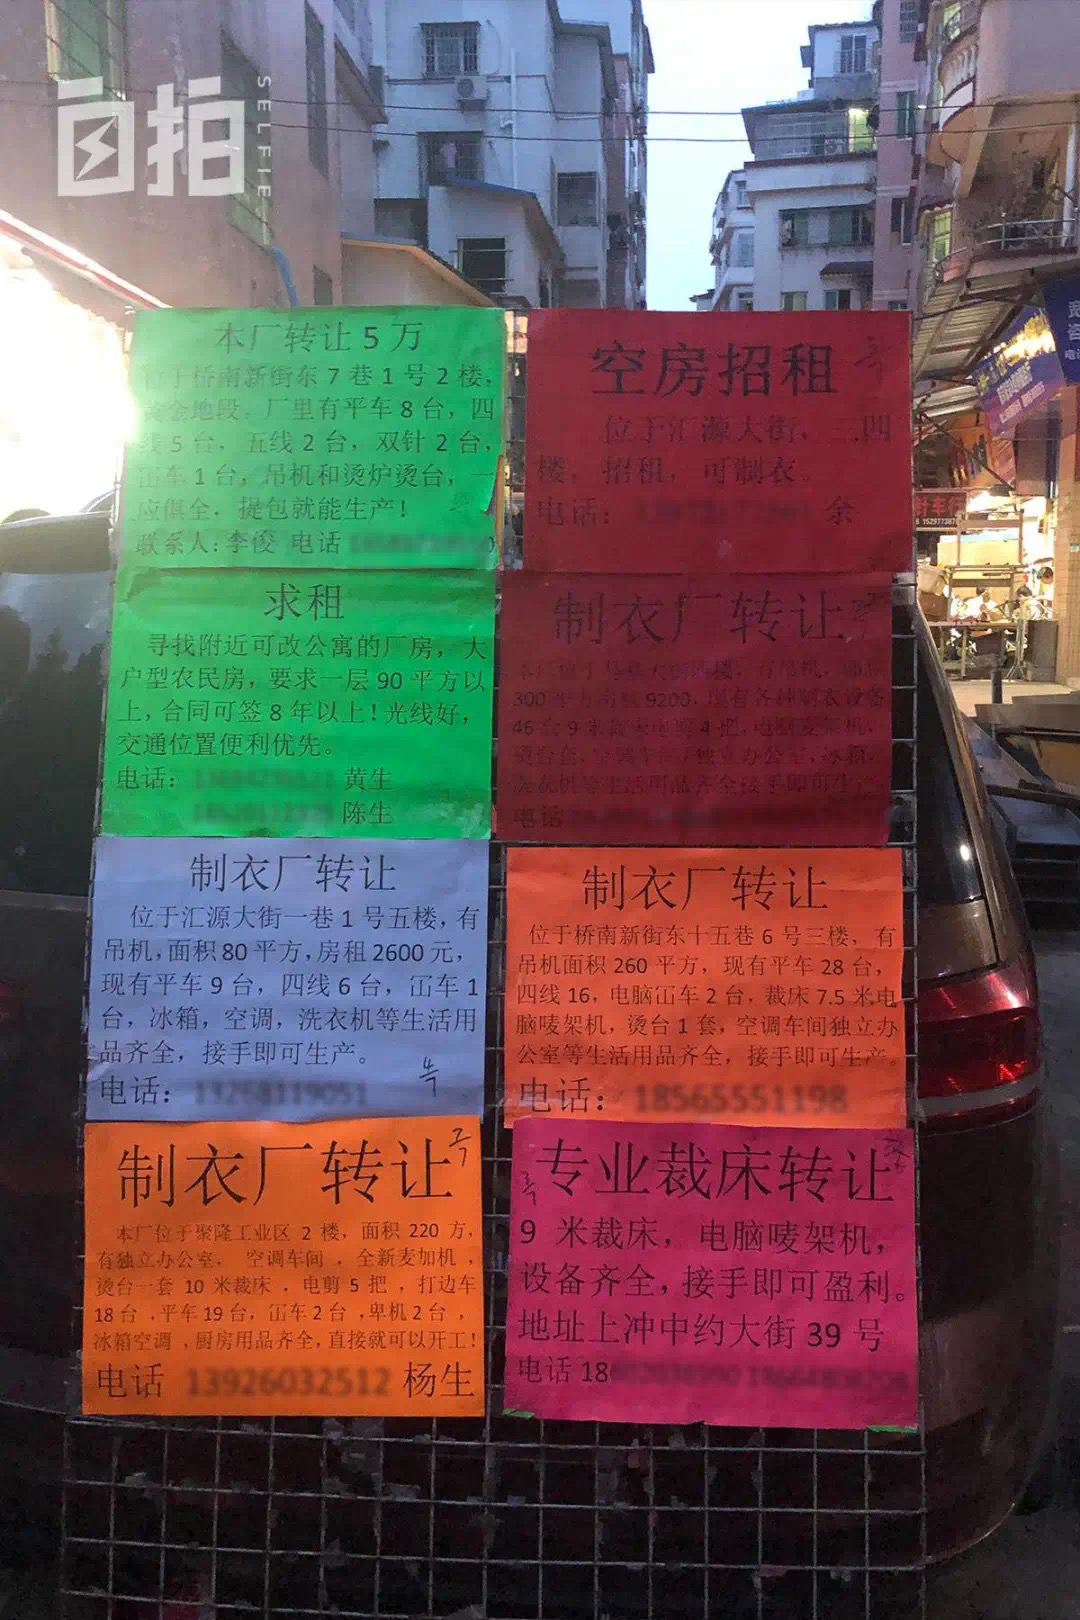 自拍
SELFIE
本厂转让5万
位于桥南新街东7巷1号2楼,
黄金地段。厂里有平车8台,四
线5台.五线2台,双针2台,
冚车1台,吊机和烫炉烫台,一
应俱全.提包就能生产!
联系人:李俊 电话
空房招租
位于汇源大街,三四
楼,招租,可制衣。
电话: 余
求租
寻找附近可改公寓的厂房,大
户型农民房,要求一层90平方以
上,合同可签8年以上!光线好,
交通位置便利优先。
电话: 黄生
陈生
制衣厂转让
300平方 9200,现有各种制衣设备
46台9米 4把,电脑麦架机,
独立办公室,冰箱,
洗衣机等生活用品齐全接手即可生产
电话
制衣厂转让
位于汇源大街一巷1号五楼,有
吊机,面积80平方,房租2600元,
现有平车9台,四线6台,冚车1
台,冰箱,空调,洗衣机等生活用
品齐全,接手即可生产。
电话:
制衣厂转让
位于桥南新街东十五巷6号三楼,有
吊机面积260平方,现有平车28台,
四线16,电脑冚车2台,裁床7.5米电
脑唛架机,烫台1套,空调车间独立办
公室等生活用品齐全,接手即可生产。
电话:
制衣厂转让
本厂位于聚隆工业区2楼,面积220方,
有独立办公室,空调车间,全新麦加机,
烫台一套10米裁床,电剪5把,打边车
18台,平车19台,冚车2台,卑机2台,
冰箱空调,厨房用品齐全,直接就可以开工!
电话 杨生
专业裁床转让
9米裁床,电脑唛架机,
设备齐全,接手即可盈利。
地址上冲中约大街39号
电话18